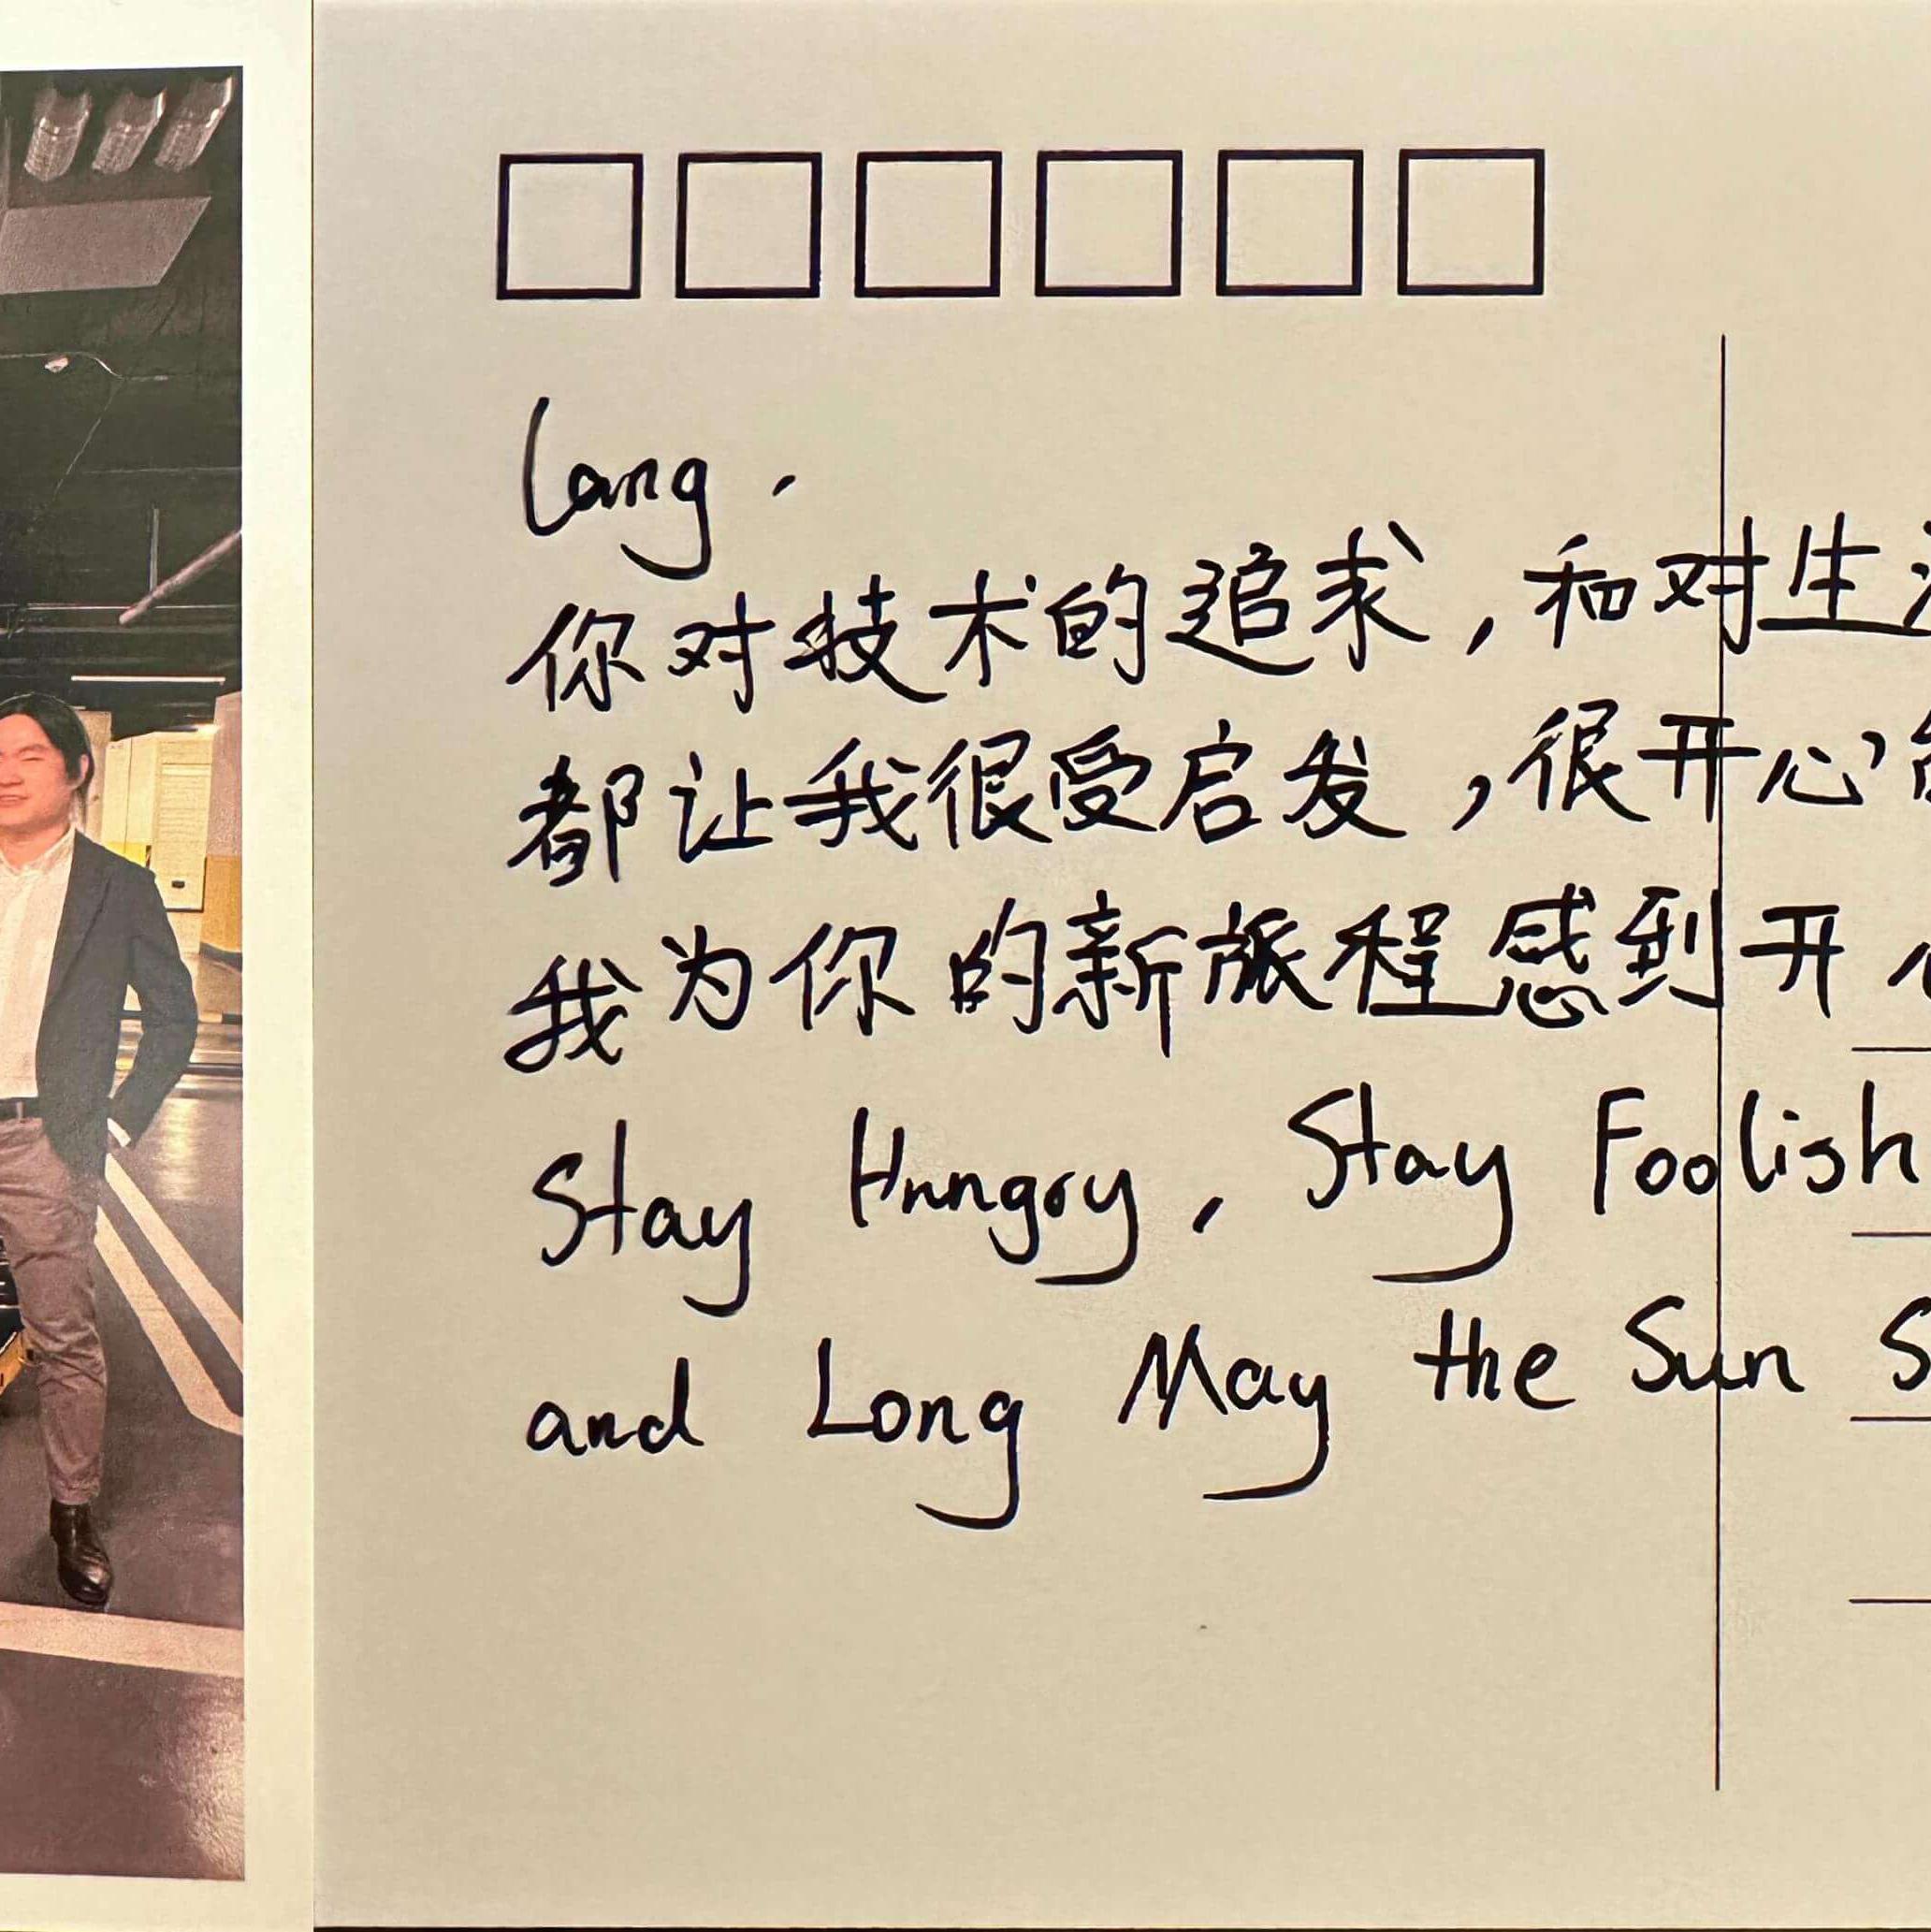 Lang,
你对技术的追求,和对生
都让我很受启发,很开心
我为你的新旅程感到开
Stay Hungry, Stay Foolish
and Long May the Sun S